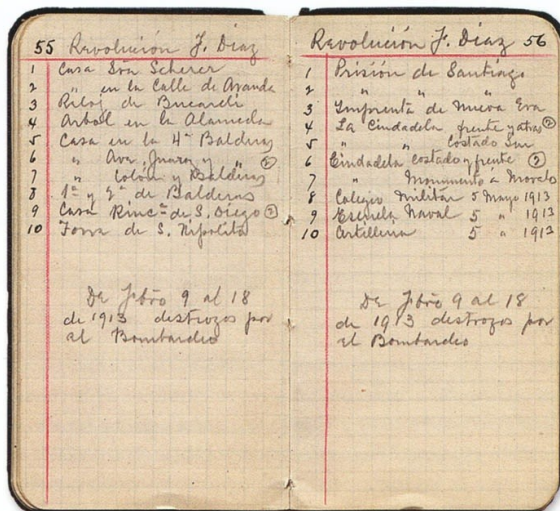 55 Revolución F. Díaz
1 Casa Sñn Scherer
2 " en la Calle de Aranda
3 Reloj de Bucareli
4 Arbol en la Alameda
5 Casa en la 4ª Balderas
6 " Ave. Juarez y " ②
7 " Colón y Balderas
8 1ª y 2ª de Balderas
9 Casa Rincª de S. Diego ②
10 Torre de S. Hipolito
De Fbro 9 al 18
de 1913 destrozos por
el Bombardeo
Revolución F. Díaz 56
1 Prisión de Santiago
2 " " "
3 Imprenta de Nueva Era
4 La Ciudadela frente y atras ②
5 " " Costado sur
6 Ciudadela costado y frente ②
7 " Monumento á Morelos
8 Colegio Militar 5 Mayo 1913
9 Escuela Naval 5 " 1913
10 Artilleria 5 " 1913
De Fbro 9 al 18
de 1913 destrozos por
el Bombardeo